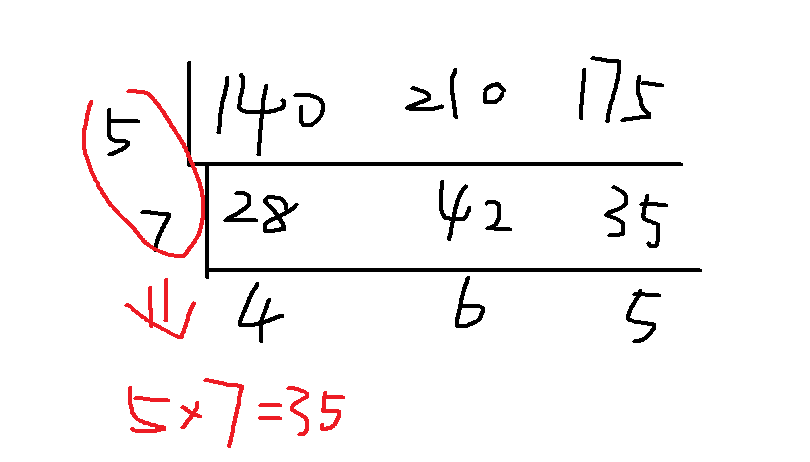 5 140 210 175
7 28 42 35
4 6 5
5×7=35